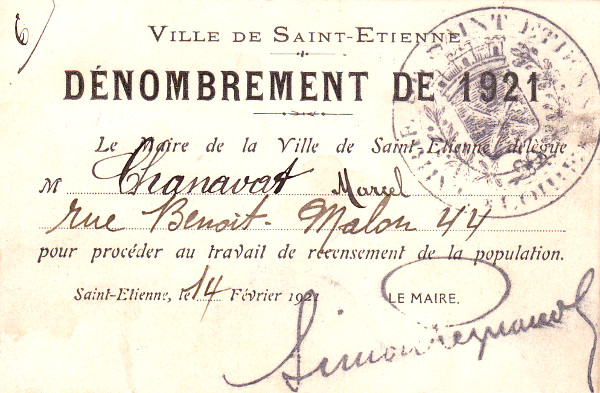 6
VILLE DE SAINT-ETIENNE
DÉNOMBREMENT DE 1921
Le Maire de la Ville de Saint-Etienne délègue
M Chanavat Marcel
rue Benoit-Malon 44
pour procéder au travail de recensement de la population.
Saint-Etienne, le 14 Février 1921
LE MAIRE.
Simon Reynaud
SAINT ETIENNE
LOIRE